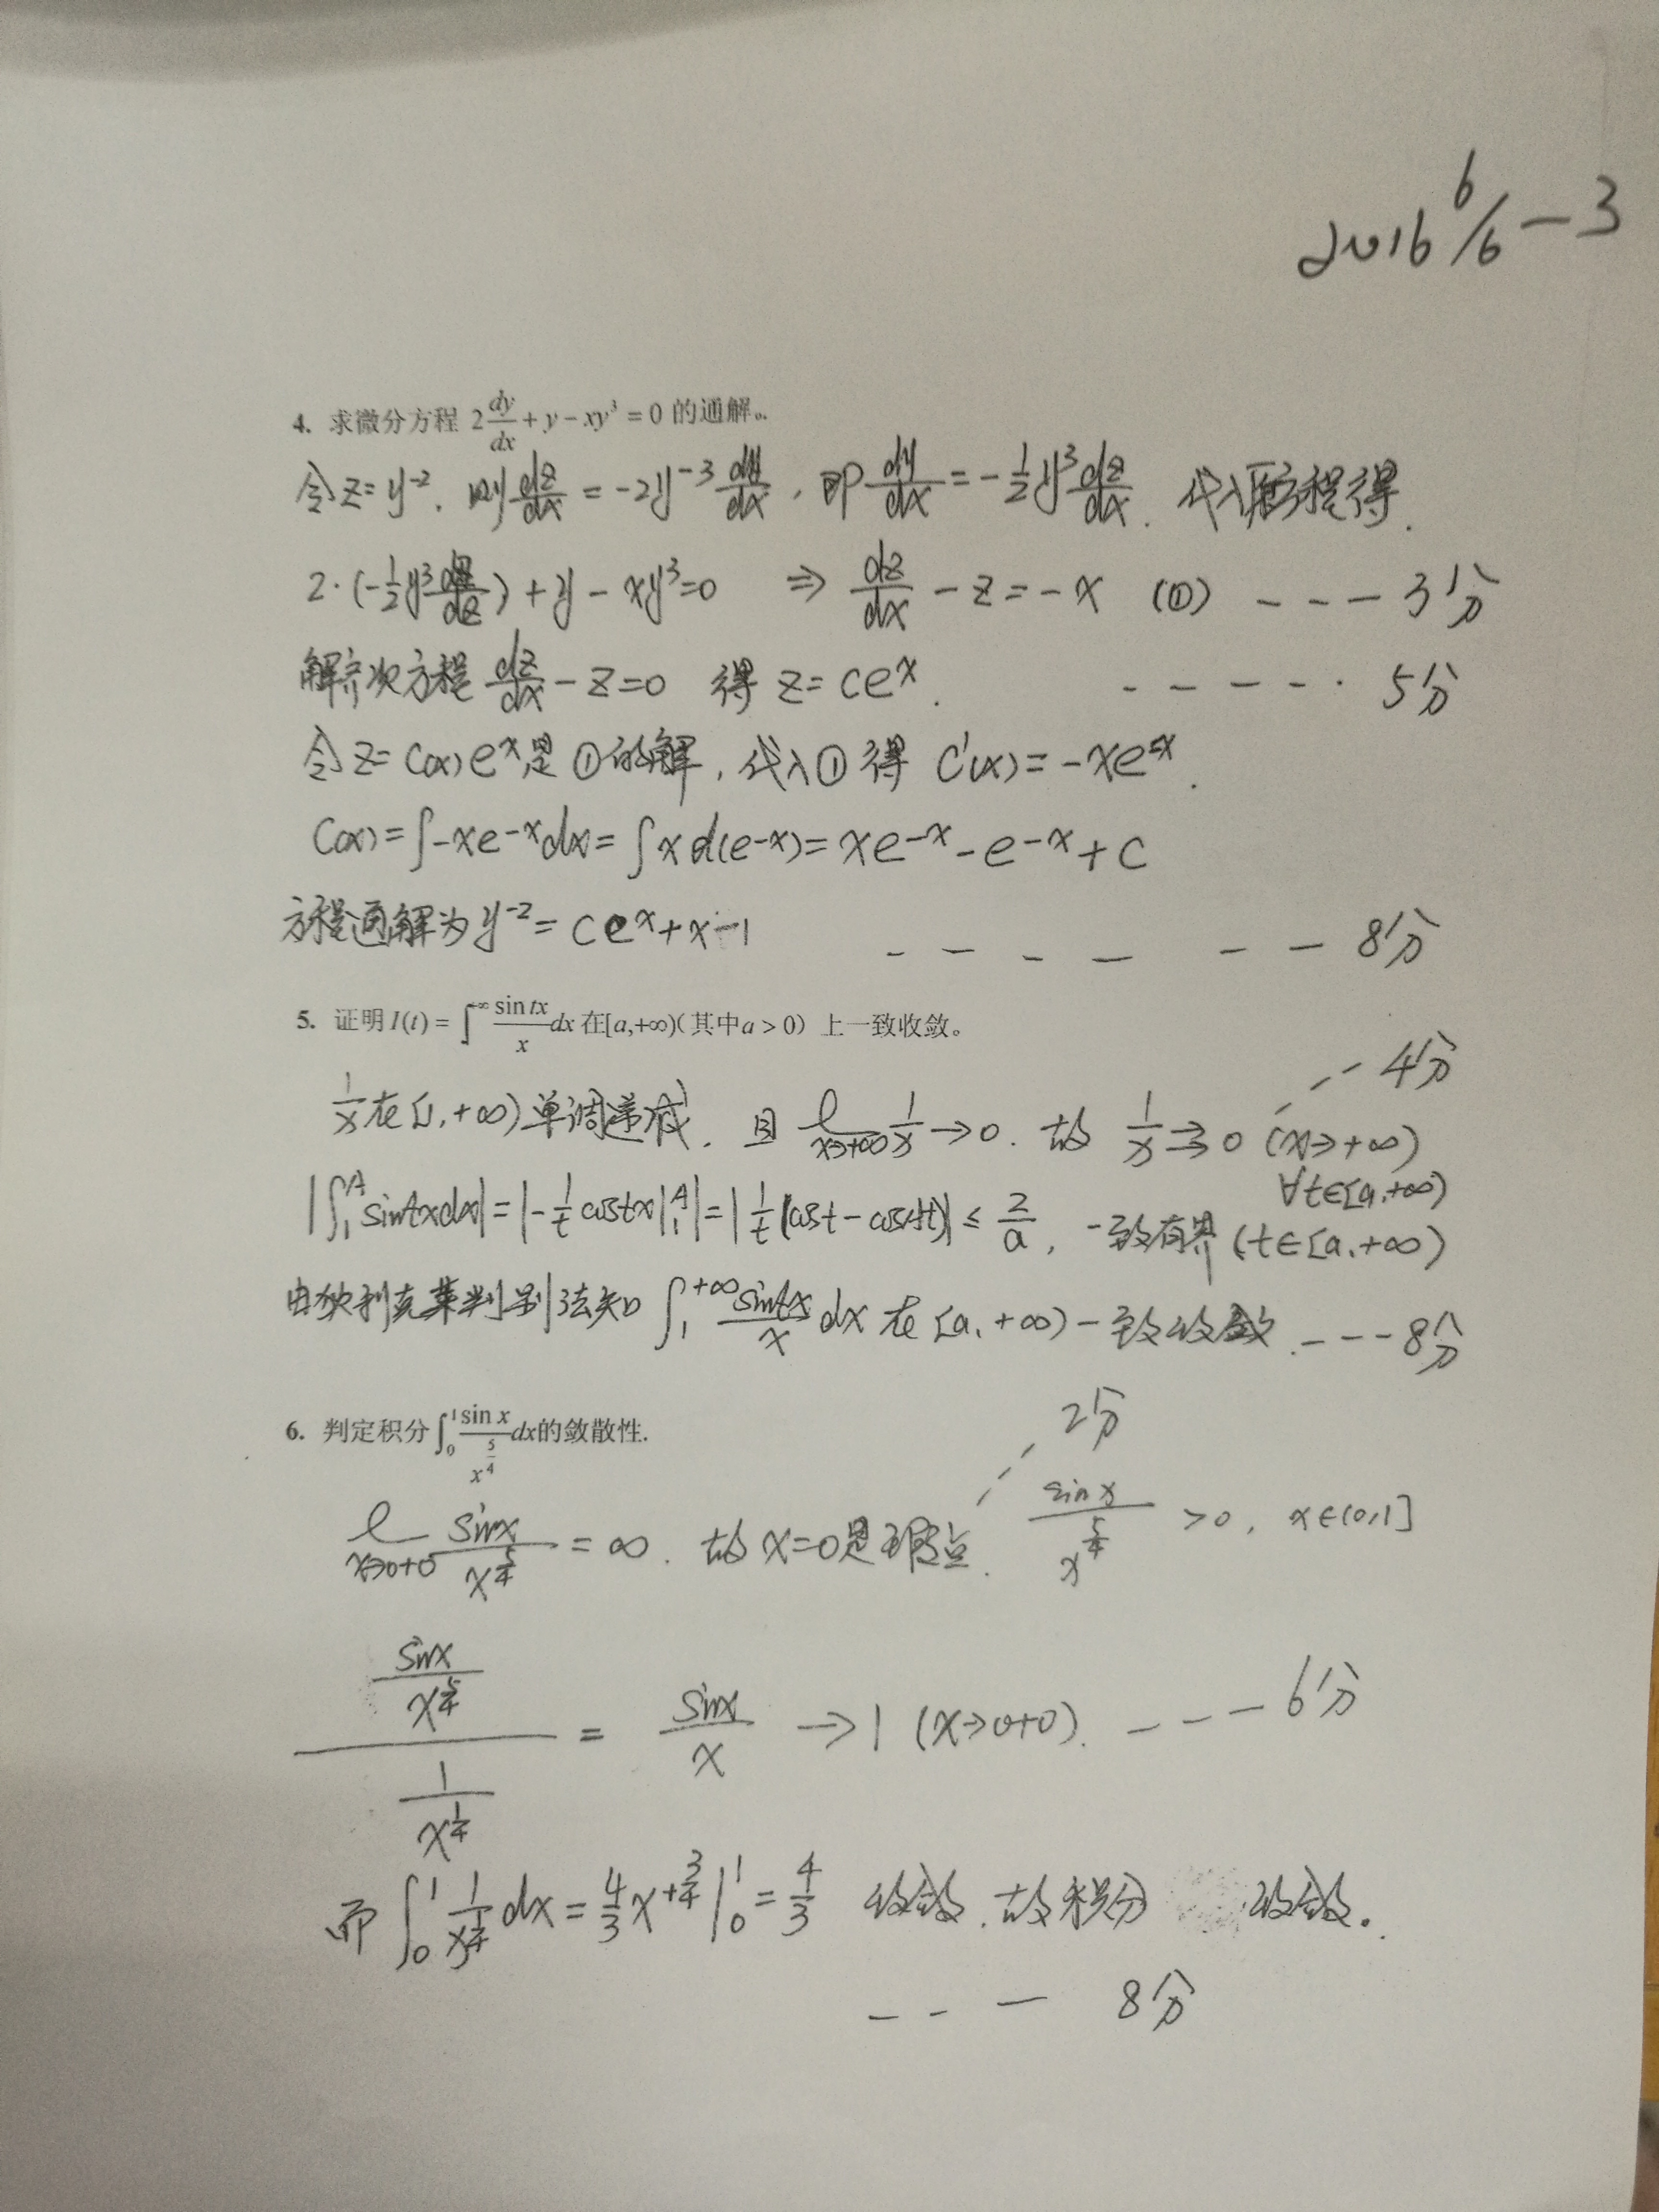 2016 6/6-3
4. 求微分方程 2dy/dx + y - xy³ = 0 的通解。
令z=y⁻², 则 dz/dx = -2y⁻³ dy/dx, 即 dy/dx = -1/2 y³ dz/dx. 代入原方程得.
2·(-1/2 y³ dz/dz) + y - xy³=0 ⇒ dz/dx - z = -x (①) --- 3分
解齐次方程 dz/dx - z=0 得 z= ceˣ. ----· 5分
令z= C(x)eˣ是①的解, 代入①得 C'(x)= -xe⁻ˣ.
C(x)= ∫-xe⁻ˣdx= ∫x d(e⁻ˣ)= xe⁻ˣ-e⁻ˣ+C
方程通解为 y⁻²= ceˣ+x-1 ------ 8分
5. 证明 I(t) = ∫^{+∞} sin tx/x dx 在[a,+∞)(其中a > 0) 上一致收敛。
--- 4分
1/x 在[1,+∞)单调递减, 且 l_{x→+∞} 1/x →0. 故 1/x ⇉ 0 (x→+∞)
∀t∈[a,+∞)
|∫₁ᴬ sintxdx|=|-1/t costx|₁ᴬ|=|1/t (cost-cosAt)| ≤ 2/a, 一致有界 (t∈[a,+∞)
由狄利克莱判别法知 ∫₁^{+∞} sintx/x dx 在[a,+∞)一致收敛. ---8分
6. 判定积分∫₀¹ sin x/x^{5/4} dx的敛散性.
--- 2分
l_{x→0+0} sinx/x^{5/4} = ∞. 故 x=0是瑕点. sin x/x^{5/4} >0, x∈(0,1]
(sinx/x^{5/4})/(1/x^{1/4}) = sinx/x →1 (x→0+0). --- 6分
而 ∫₀¹ 1/x^{1/4} dx = 4/3 x^{+3/4}|₀¹ = 4/3 收敛. 故积分 收敛.
--- 8分